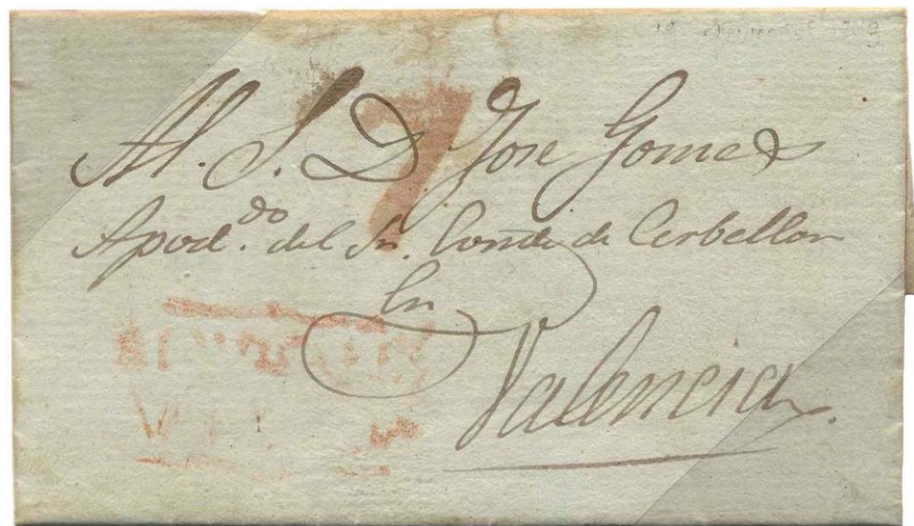 7
Al. S. D Jose Gomez
Apod.do del Sr. Conde de Cerbellon
En
Valencia